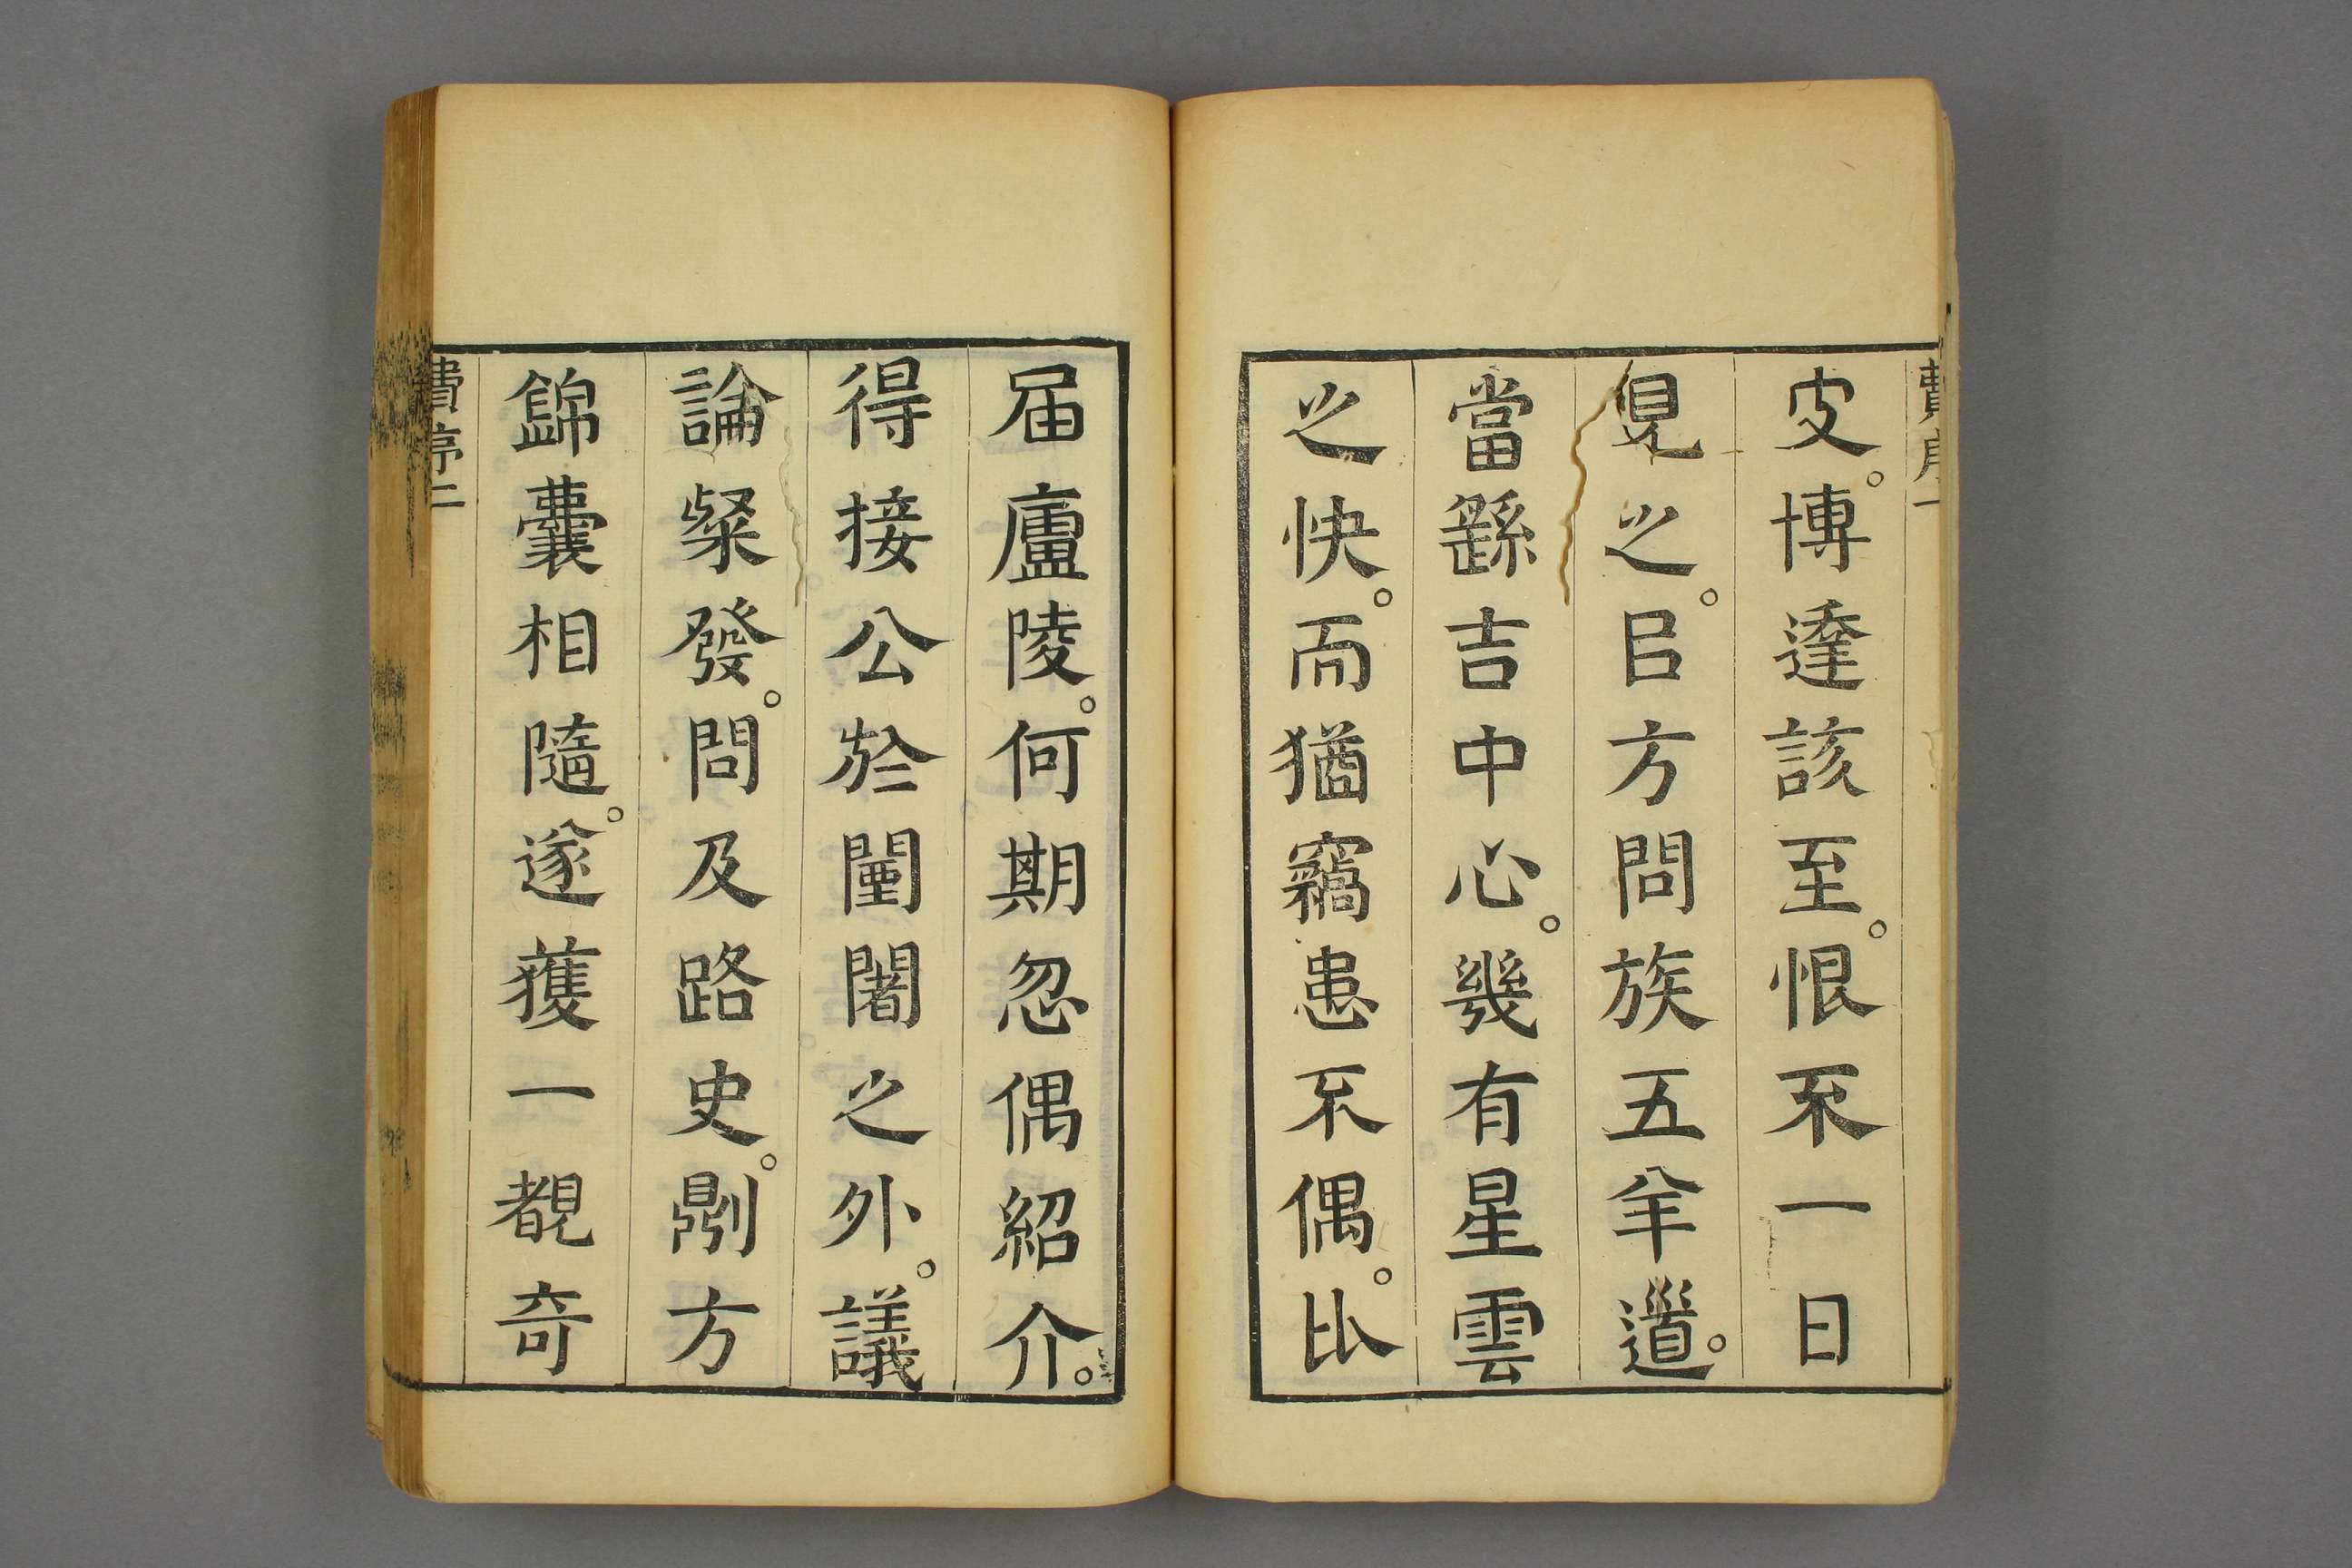 費序一
皮。博達該至。恨不一日
見之。㠯方問族五年道。
當繇吉中心。幾有星雲
之快。而猶竊患不偶。比
届廬陵。何期忽偶紹介。
得接公於闉闍之外。議
論粲發。問及路史。𠟭方
錦囊相隨。遂獲一覩奇
費序二